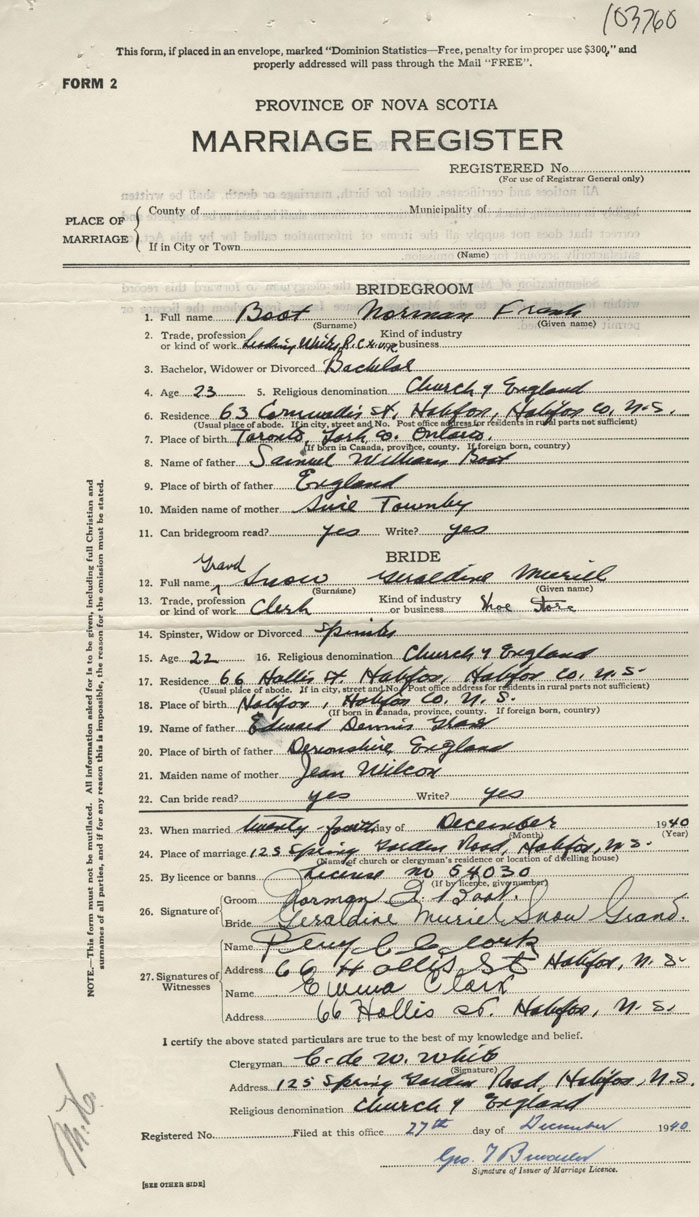 103760
This form, if placed in an envelope, marked "Dominion Statistics—Free, penalty for improper use $300," and
properly addressed will pass through the Mail "FREE".
FORM 2
PROVINCE OF NOVA SCOTIA
MARRIAGE REGISTER
REGISTERED No.
(For use of Registrar General only)
PLACE OF MARRIAGE
County of Municipality of
If in City or Town
(Name)
BRIDEGROOM
1. Full name Boot Norman Frank
(Surname) (Given name)
2. Trade, profession or kind of work Leading Writer R.C.N.V.R. Kind of industry or business
3. Bachelor, Widower or Divorced Bachelor
4. Age 23 5. Religious denomination Church of England
6. Residence 63 Cornwallis St. Halifax, Halifax Co. N.S.
(Usual place of abode. If in city, street and No. Post office address for residents in rural parts not sufficient)
7. Place of birth Toronto, York Co. Ontario.
(If born in Canada, province, county. If foreign born, country)
8. Name of father Samuel William Boot
9. Place of birth of father England
10. Maiden name of mother Townby
11. Can bridegroom read? yes Write? yes
BRIDE
Grand
12. Full name Snow Geraldine Muriel
(Surname) (Given name)
13. Trade, profession or kind of work Clerk Kind of industry or business Shoe Store
14. Spinster, Widow or Divorced Spinster
15. Age 22 16. Religious denomination Church of England
17. Residence 66 Hollis St. Halifax, Halifax Co. N.S.
(Usual place of abode. If in city, street and No. Post office address for residents in rural parts not sufficient)
18. Place of birth Halifax, Halifax Co. N.S.
(If born in Canada, province, county. If foreign born, country)
19. Name of father Edward Dennis Grand
20. Place of birth of father Devonshire, England
21. Maiden name of mother Jean Wilcox
22. Can bride read? yes Write? yes
23. When married twenty-fourth day of December 1940
(Month) (Year)
24. Place of marriage 125 Spring Garden Road, Halifax, N.S.
(Name of church or clergyman's residence or location of dwelling house)
25. By licence or banns License no 54030
(If by licence, give number)
26. Signature of
Groom Norman F. Boot.
Bride Geraldine Muriel Snow Grand.
27. Signatures of Witnesses
Name Percy C Clark
Address 66 Hollis St Halifax, N.S.
Name Emma Clark
Address 66 Hollis St. Halifax, N.S.
I certify the above stated particulars are true to the best of my knowledge and belief.
Clergyman C. de W. White
(Signature)
Address 125 Spring Garden Road, Halifax, N.S.
Religious denomination Church of England
Registered No. Filed at this office 27th day of December 1940.
Geo.
Signature of Issuer of Marriage Licence.
[SEE OTHER SIDE]
NOTE.—This form must not be mutilated. All information asked for is to be given, including full Christian and
surnames of all parties, and if for any reason this is impossible, the reason for the omission must be stated.